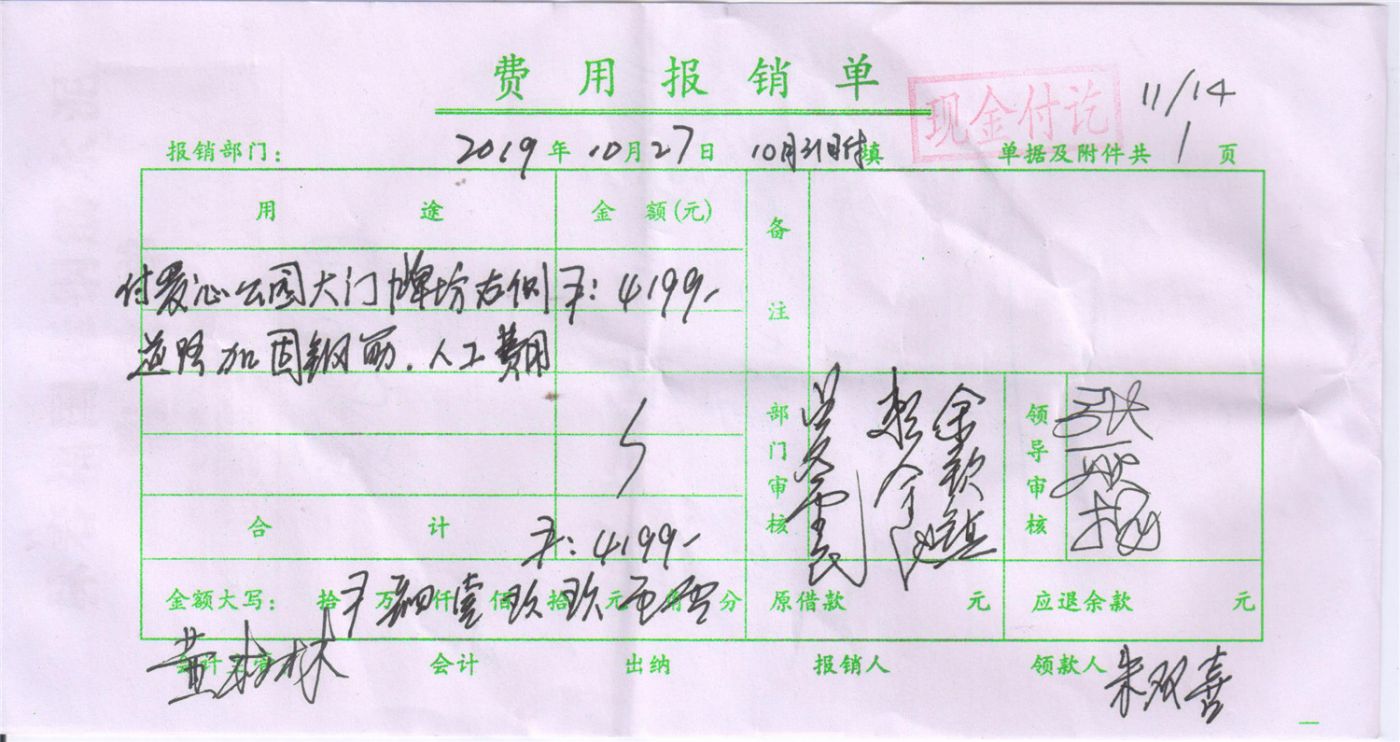 费用报销单
现金付讫
11/14
报销部门： 2019年10月27日 10月31日付填 单据及附件共1页
用途 金额(元) 备注
付爱心公园大门牌坊右侧 ¥：4199-
道路加固钢筋.人工费用
部门审核 领导审核
合计 ¥：4199-
金额大写： 拾万仟佰拾元角分 原借款 元 应退余款 元
会计主管 会计 出纳 报销人 领款人 朱双喜